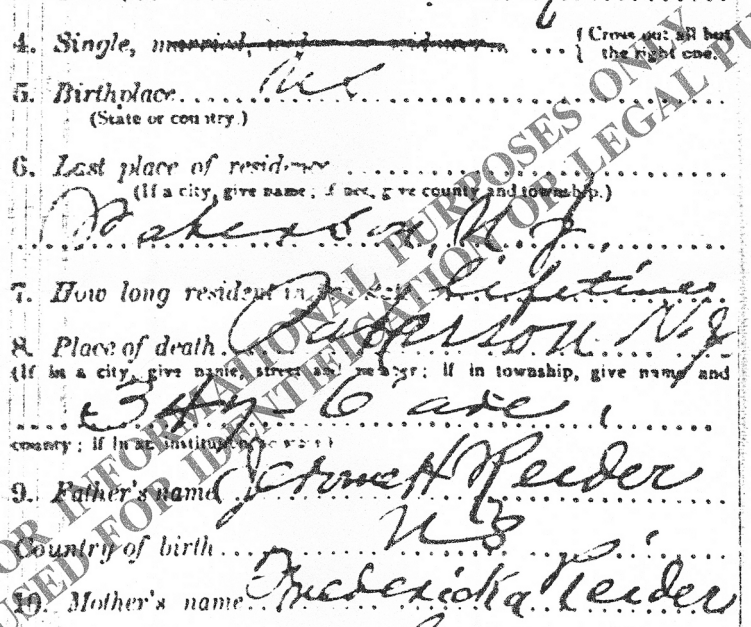 4. Single, married, widow or widower, ... { Cross out all but the right one.
5. Birthplace
(State or country.)
6. Last place of residence
(If a city, give name; if not, give county and township.)
Paterson, N. J.
7. How long resident in Lifetime
8. Place of death Paterson N. J
(If in a city, give name, street and number; if in township, give name and
6 ave
county; if in an institution,
9. Father's name Reider
Country of birth
10. Mother's name Fredericka Reider
FOR INFORMATIONAL PURPOSES ONLY
USED FOR IDENTIFICATION OR LEGAL PU